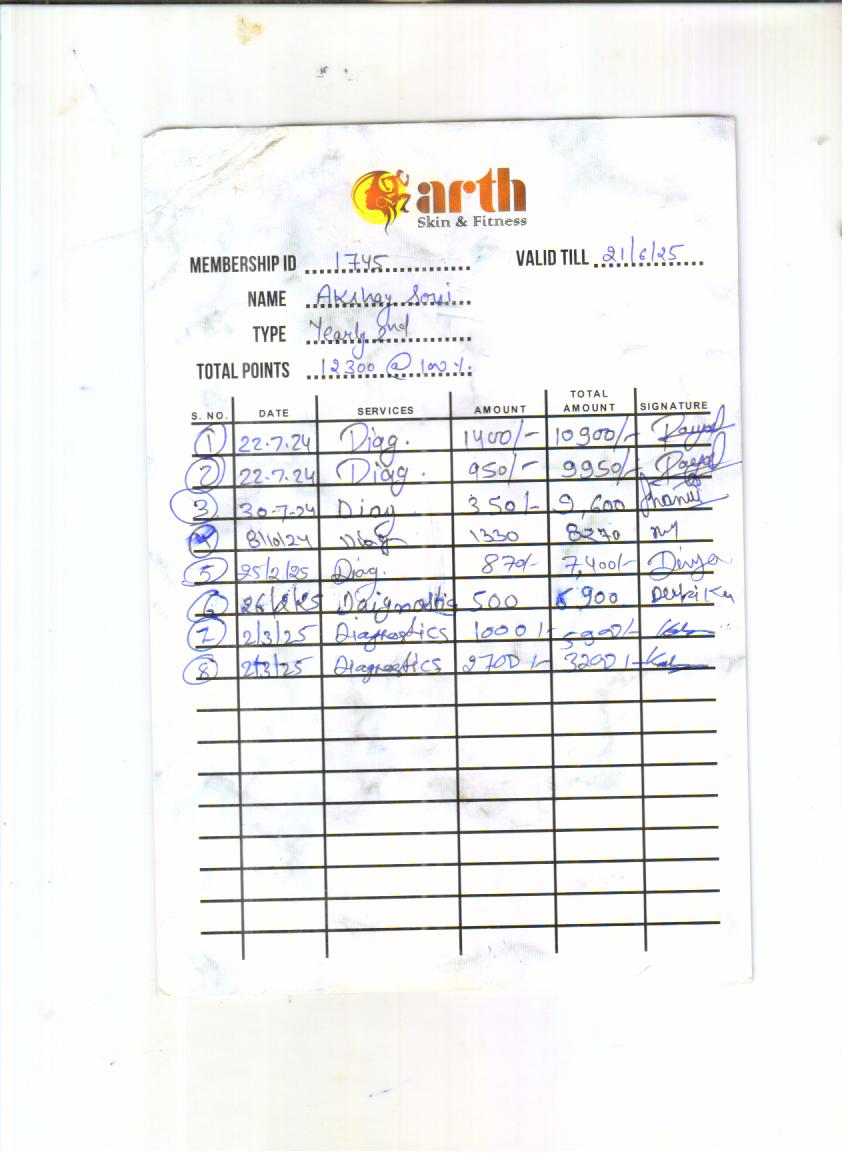 arth
Skin & Fitness
MEMBERSHIP ID 1745 VALID TILL 21/6/25
NAME Akshay Soni
TYPE Yearly 2nd
TOTAL POINTS 12300 @ 100%.
S. NO. DATE SERVICES AMOUNT TOTAL AMOUNT SIGNATURE
1 22.7.24 Diag. 1400/- 10900/- Payal
2 22.7.24 Diag. 950/- 9950/- Payal
3 30-7-24 Diag 350/- 9,600
8/10/24 Diag 1330 8270
5 25/2/25 Diag. 870/- 7,400/- Divya
6 26/2/25 Daignostic 500 6900
7 2/3/25 Diagnostics 1000/- 5900/-
8 2/3/25 Diagnostics 2700/- 3200/-